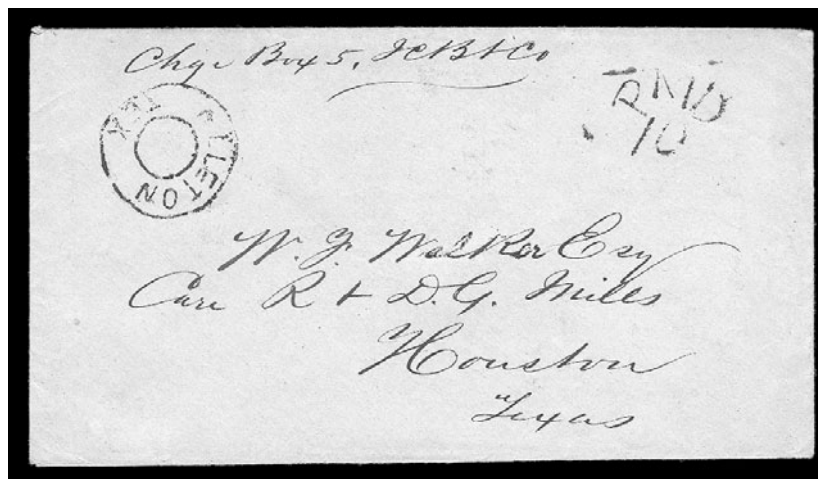 Chge Box 5, J C B & Co
PAID
10
TEX
W. J. Walker Esq
Care R & D. G. Mills
Houston
Texas